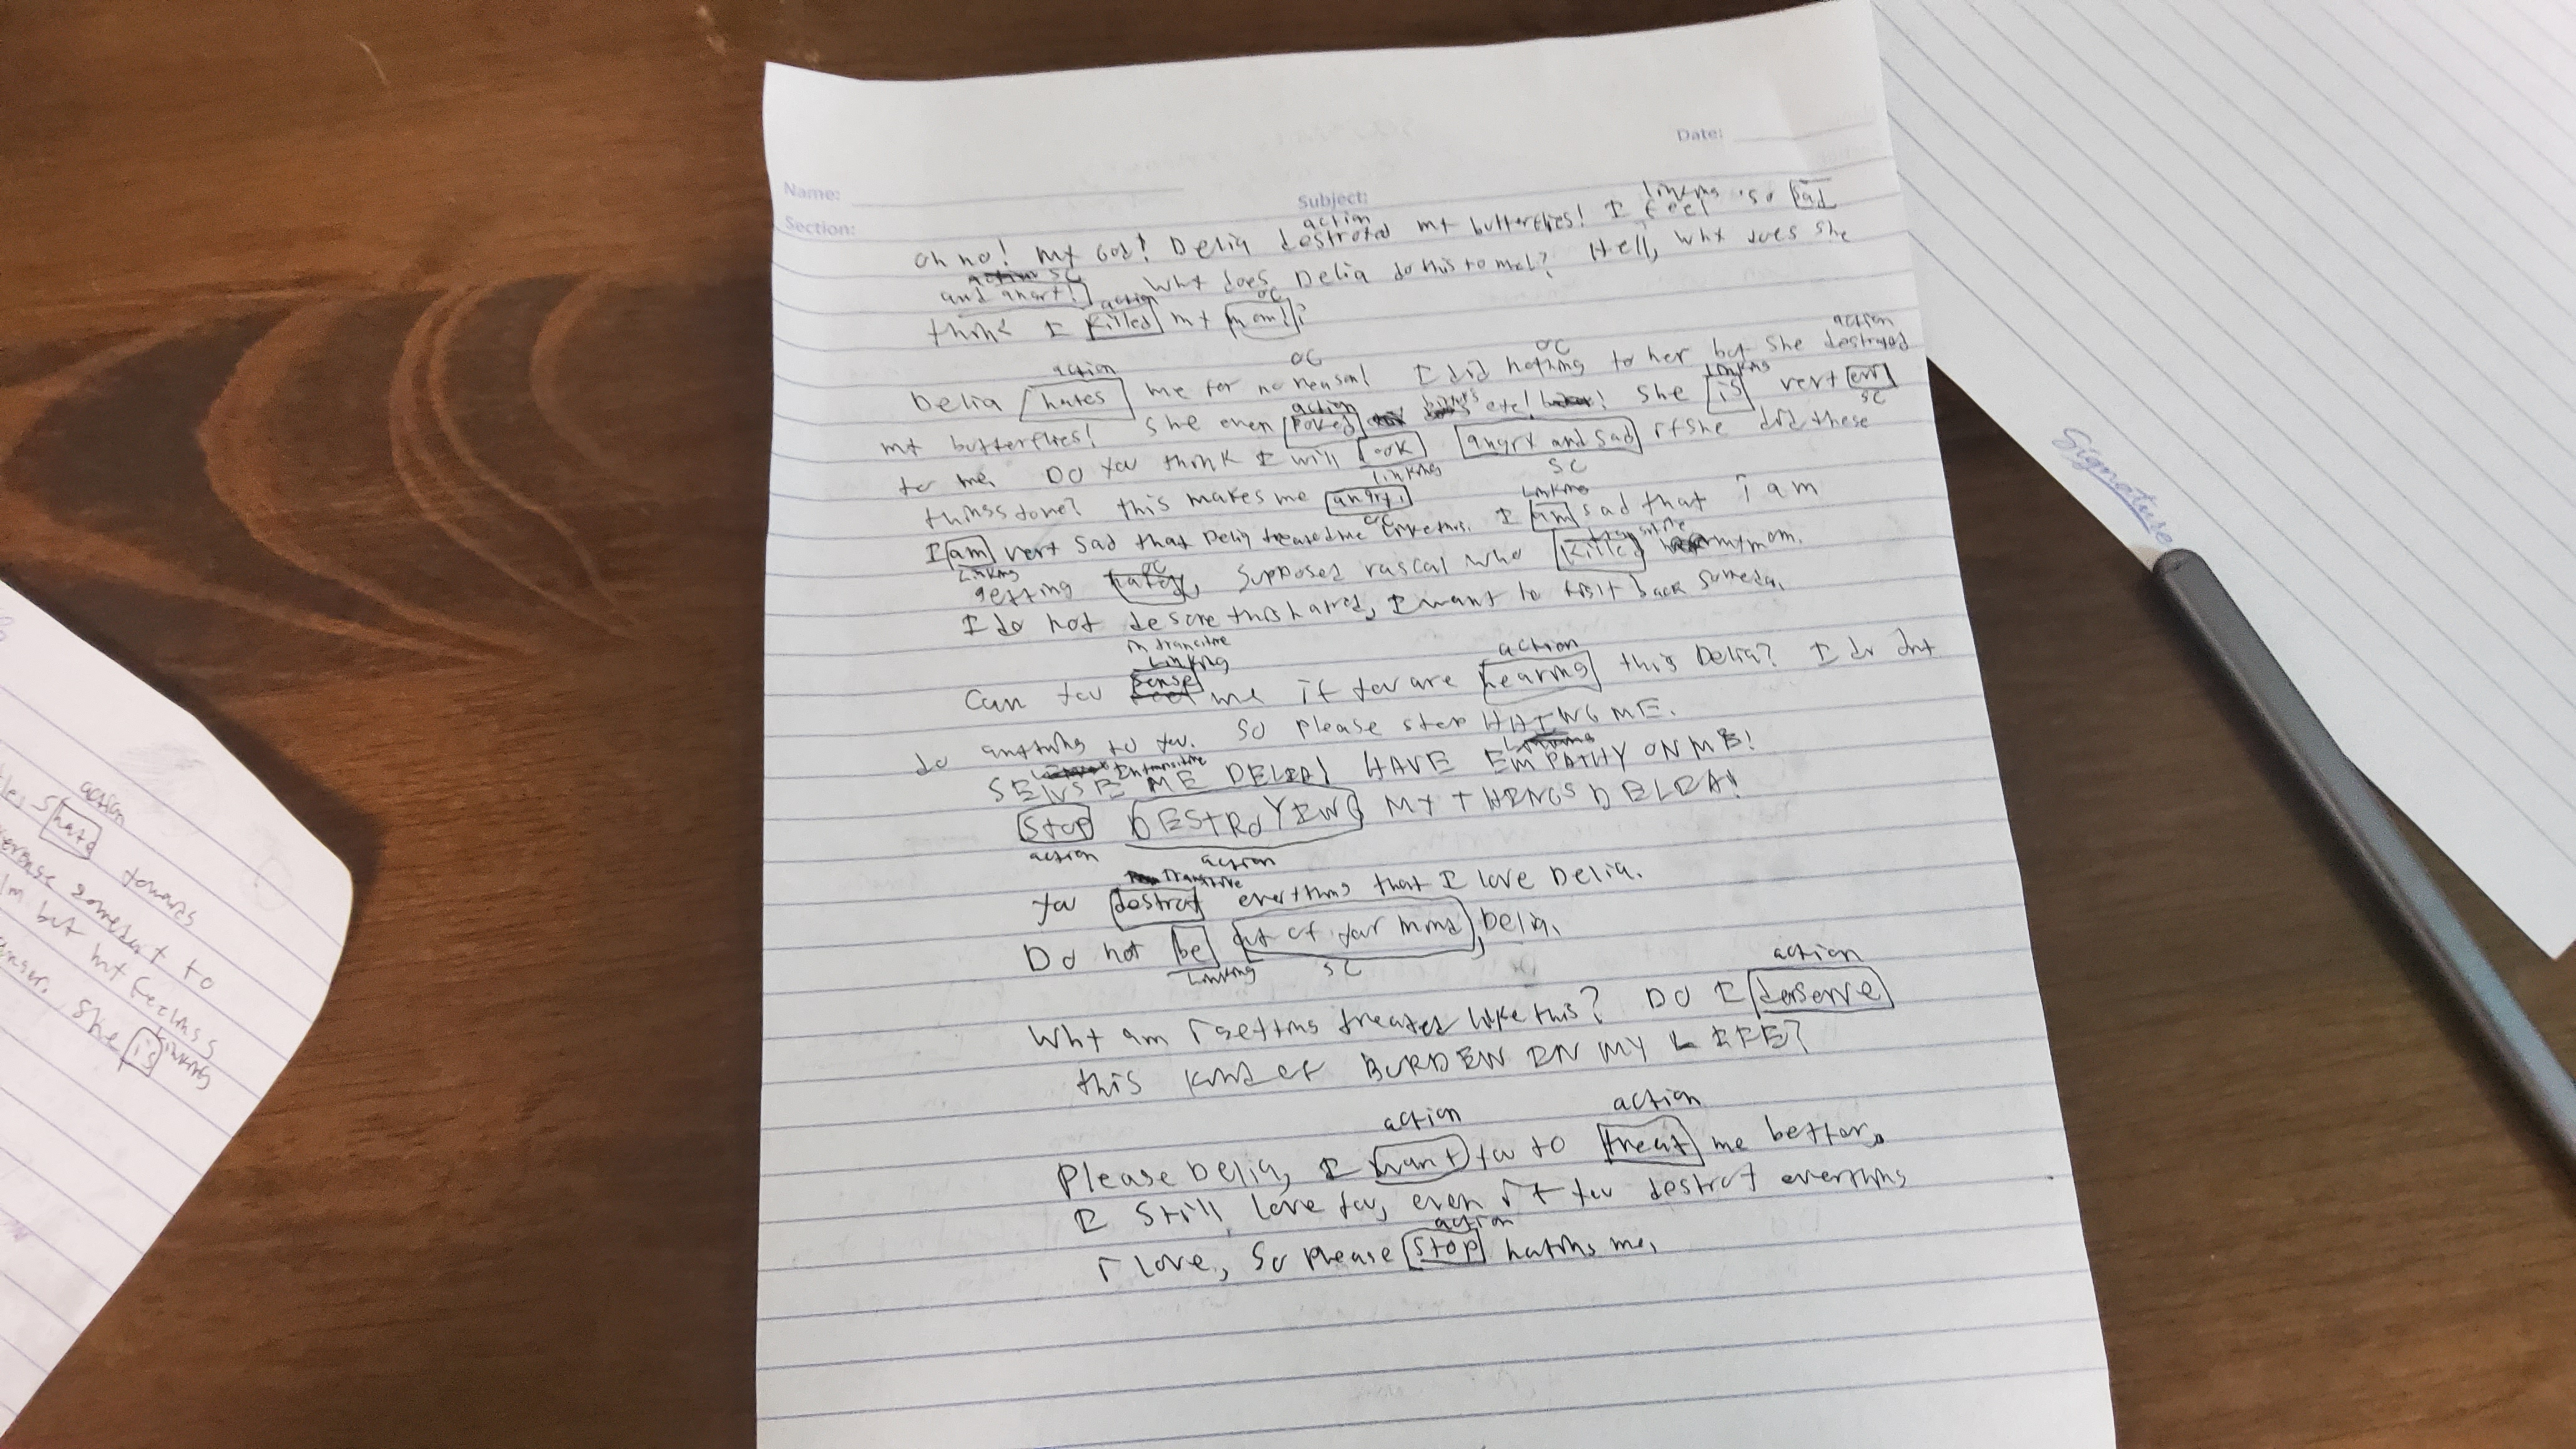 Date:
Name:
Subject:
Section:
action linking
Oh no! My God! Delia destroyed my butterflies! I feel so sad
action SC
and angry! Why does Delia do this to me!? Hell, why does she
action OC
think I killed my mom!?
action OC OC action
Delia hates me for no reason! I did nothing to her but she destroyed
action linking
my butterflies! She even poked eye! She is very evil
SC
to me. Do you think I will look angry and sad if she did these
linking SC
things done? This makes me angry! linking
OC
I am very sad that Delia treated me like this. I am sad that I am
linking OC transitive
getting hatred, supposed rascal who killed my mom.
I do not deserve this hatred, I want to fight back someday.
intransitive
linking action
Can you sense feel me if you are hearing this Delia? I do not
do anything to you. So please stop HATING ME.
Linking Intransitive Linking
SENSE ME DELIA! HAVE EMPATHY ON ME!
Stop DESTROYING MY THINGS DELIA!
action action
Transitive
You destroy everything that I love Delia.
Do not be out of your mind, Delia.
Linking SC
action
Why am I getting treated like this? Do I deserve
this kind of BURDEN IN MY LIFE?
action action
Please Delia, I want you to treat me better.
I still love you, even if you destroy everything
action
I love, so please stop hating me.
Signature
action
hate towards
to
but my feelings
linking
She is